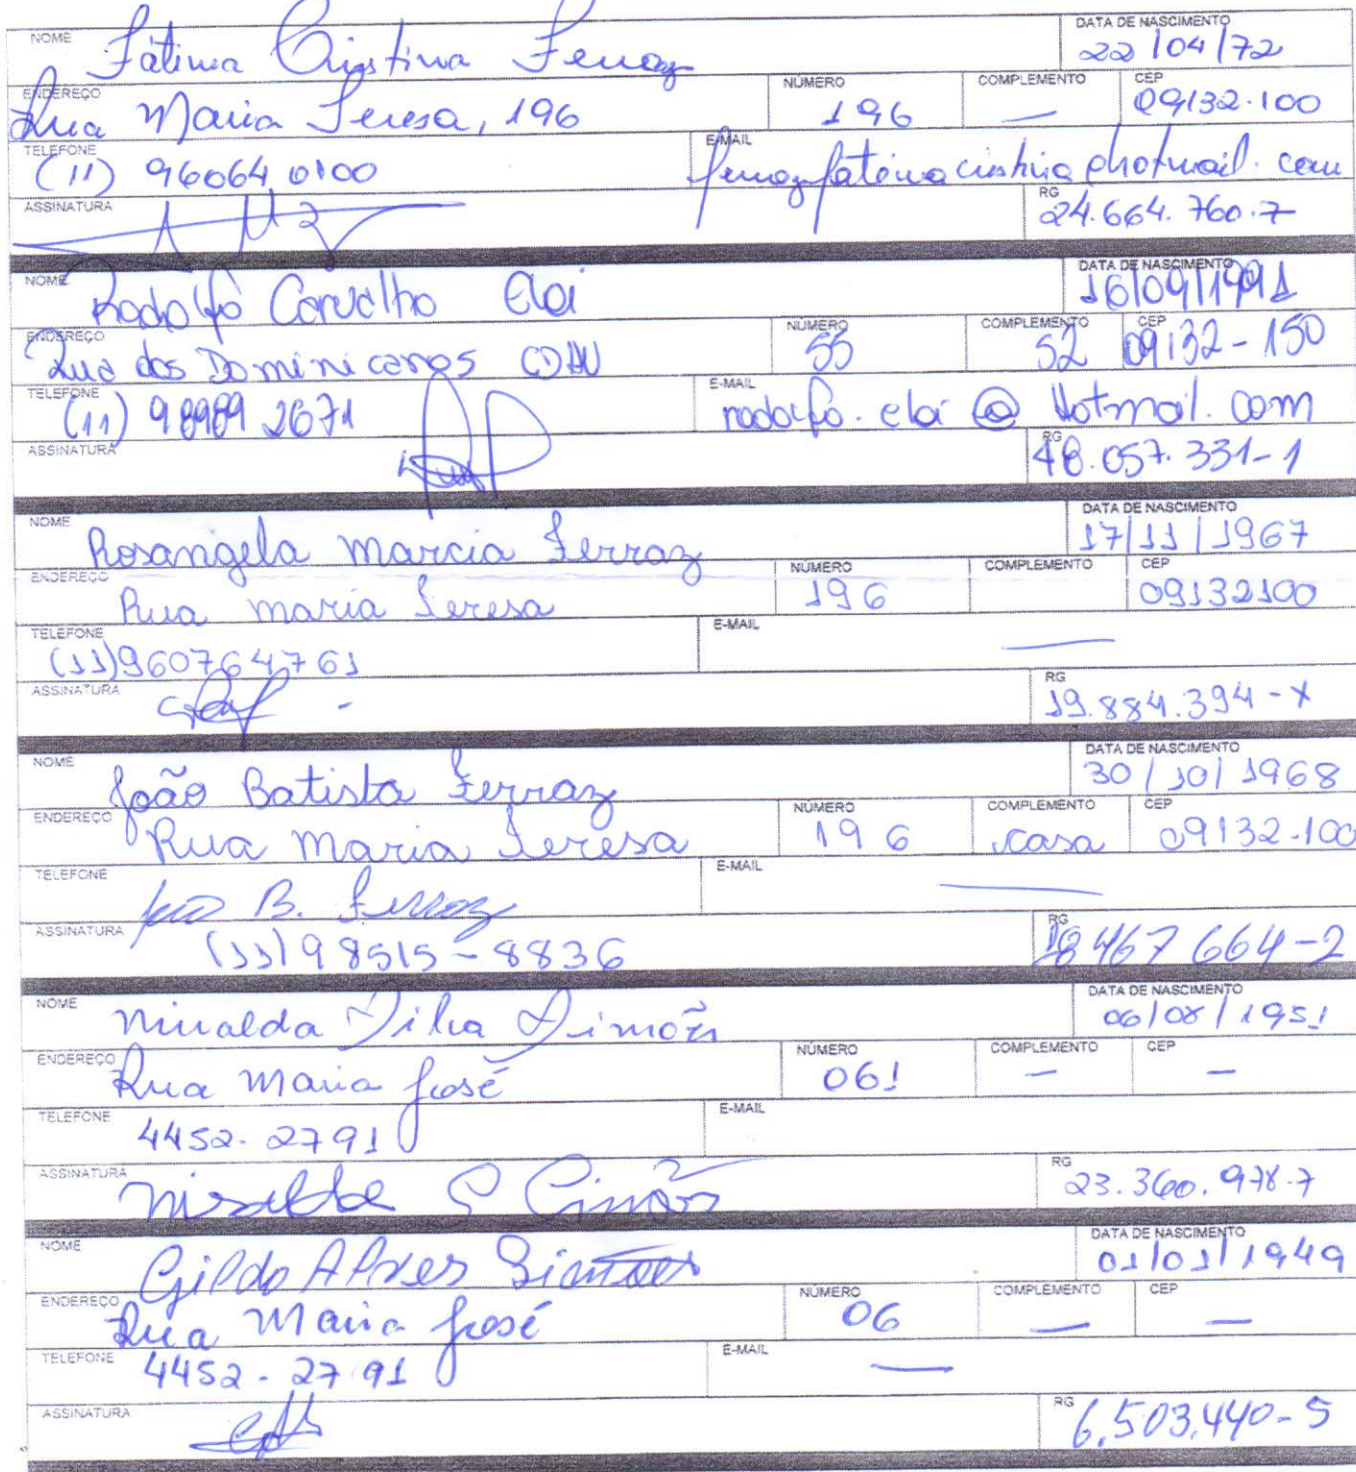 NOME Fátima Cristina Ferraz DATA DE NASCIMENTO 22/04/72
ENDEREÇO Rua Maria Teresa, 196 NÚMERO 196 COMPLEMENTO — CEP 09132-100
TELEFONE (11) 96064 0100 E-MAIL
ASSINATURA RG 24.664.760-7
NOME Rodolfo Carvalho Eloi DATA DE NASCIMENTO 16/09/1991
ENDEREÇO Rua dos Dominicanos NÚMERO 55 COMPLEMENTO 52 CEP 09132-150
TELEFONE (11) 98989 2671 E-MAIL rodolfo.eloi@Hotmail.com
ASSINATURA RG 48.057.331-1
NOME Rosangela Marcia Ferraz DATA DE NASCIMENTO 17/11/1967
ENDEREÇO Rua Maria Teresa NÚMERO 196 COMPLEMENTO CEP 09132100
TELEFONE (11)960764761 E-MAIL —
ASSINATURA RG 19.884.394-X
NOME João Batista Ferraz DATA DE NASCIMENTO 30/10/1968
ENDEREÇO Rua Maria Teresa NÚMERO 196 COMPLEMENTO casa CEP 09132-100
TELEFONE João B. Ferraz E-MAIL —
ASSINATURA (11)98515-8836 RG 18467664-2
NOME Miralda Silva Simões DATA DE NASCIMENTO 06/08/1951
ENDEREÇO Rua Maria José NÚMERO 061 COMPLEMENTO — CEP —
TELEFONE 4452-2791 E-MAIL
ASSINATURA RG 23.360.978-7
NOME Gildo Alves Simões DATA DE NASCIMENTO 01/01/1949
ENDEREÇO Rua Maria José NÚMERO 06 COMPLEMENTO — CEP —
TELEFONE 4452-2791 E-MAIL —
ASSINATURA RG 6.503.440-5